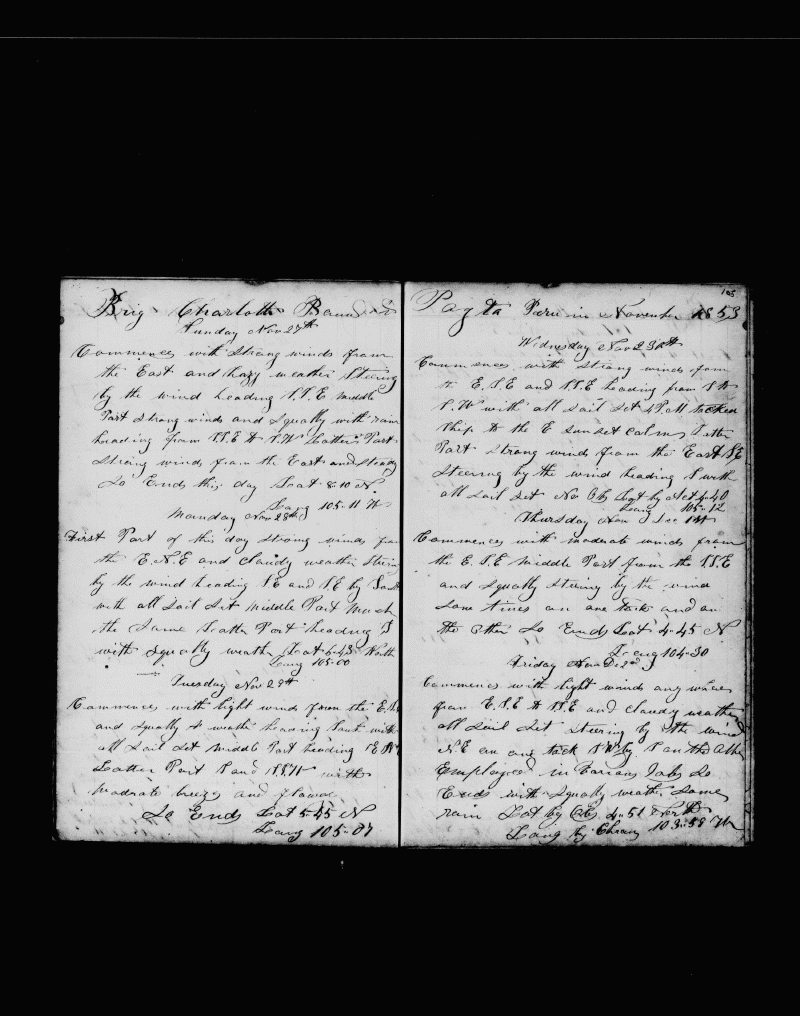 Brig Charlotte Bound to
Sunday Nov 27th
Commences with Strong winds from
the East and hazy weather Steering
by the wind heading S.S.E middle
Part strong winds and Squally with rain
heading from S.S.E to S.W Latter Part
Strong winds from the East and steady
So Ends this day Lat 8-10 N
Long 105-11 W
Monday Nov 28th
First Part of this day strong winds from
the E.N.E and Cloudy weather Steering
by the wind heading SE and SE by South
with all Sail Set middle Part Much
the Same Latter Part heading S
with Squally weather Lat 6-43 North
Long 105-00
Tuesday Nov 29th
Commences with light winds from the E.S.E
and Squally weather heaving South with
all Sail Set middle Part heading
Latter Part S and S.S.W with
Modrate breeze and
So Ends Lat 5-45 N
Long 105-07
105
Payta Peru in November 1853
Wednesday Nov 30th
Commences with strong winds from
to E.S.E and S.S.E heading from S to
S.W with all sail set 4 P.M tacked
Ship to the E sunset calm Latter
Part strong winds from the East SE
Steering by the wind heading S with
all Sail Set No Ob Lat by Act 4-40
Long 105-12
Thursday Dec 1st
Commences with moderate winds from
the E.S.E middle Part from the S.S.E
and Squally steering by the wind
some times on one tack and on
the other So Ends Lat 4-45 N
Long 104-30
Friday Dec 2nd
Commences with light winds
from E.S.E to S.E and cloudy weather
all Sail Set steering by the wind
N.E on one tack S.W by S on the other
Employed in Various Jobs So
Ends with Squally weather Some
rain Lat by Ob 4-51 North
Long by Chron 103-58 W